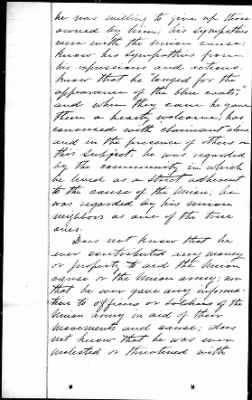 he was willing to give up those
owned by him; his sympathies
were with the Union cause:
knew his sympathies from
his expressions and actions;
knew that he "longed for the
appearance of the blue coats,"
and when they came he gave
them a hearty welcome; has
conversed with claimant alone
and in the presence of others on
this subject: he was regarded
by the community in which
he lived as a strict adherent
to the cause of the Union; he
was regarded by his union
neighbors as one of the true
ones.
Does not know that he
ever contributed any money
or property to aid the Union
cause or the Union army; or
that he ever gave any informa-
tion to officers or soldiers of the
Union army in aid of their
movements and cause; does
not know that he was ever
molested or threatened with